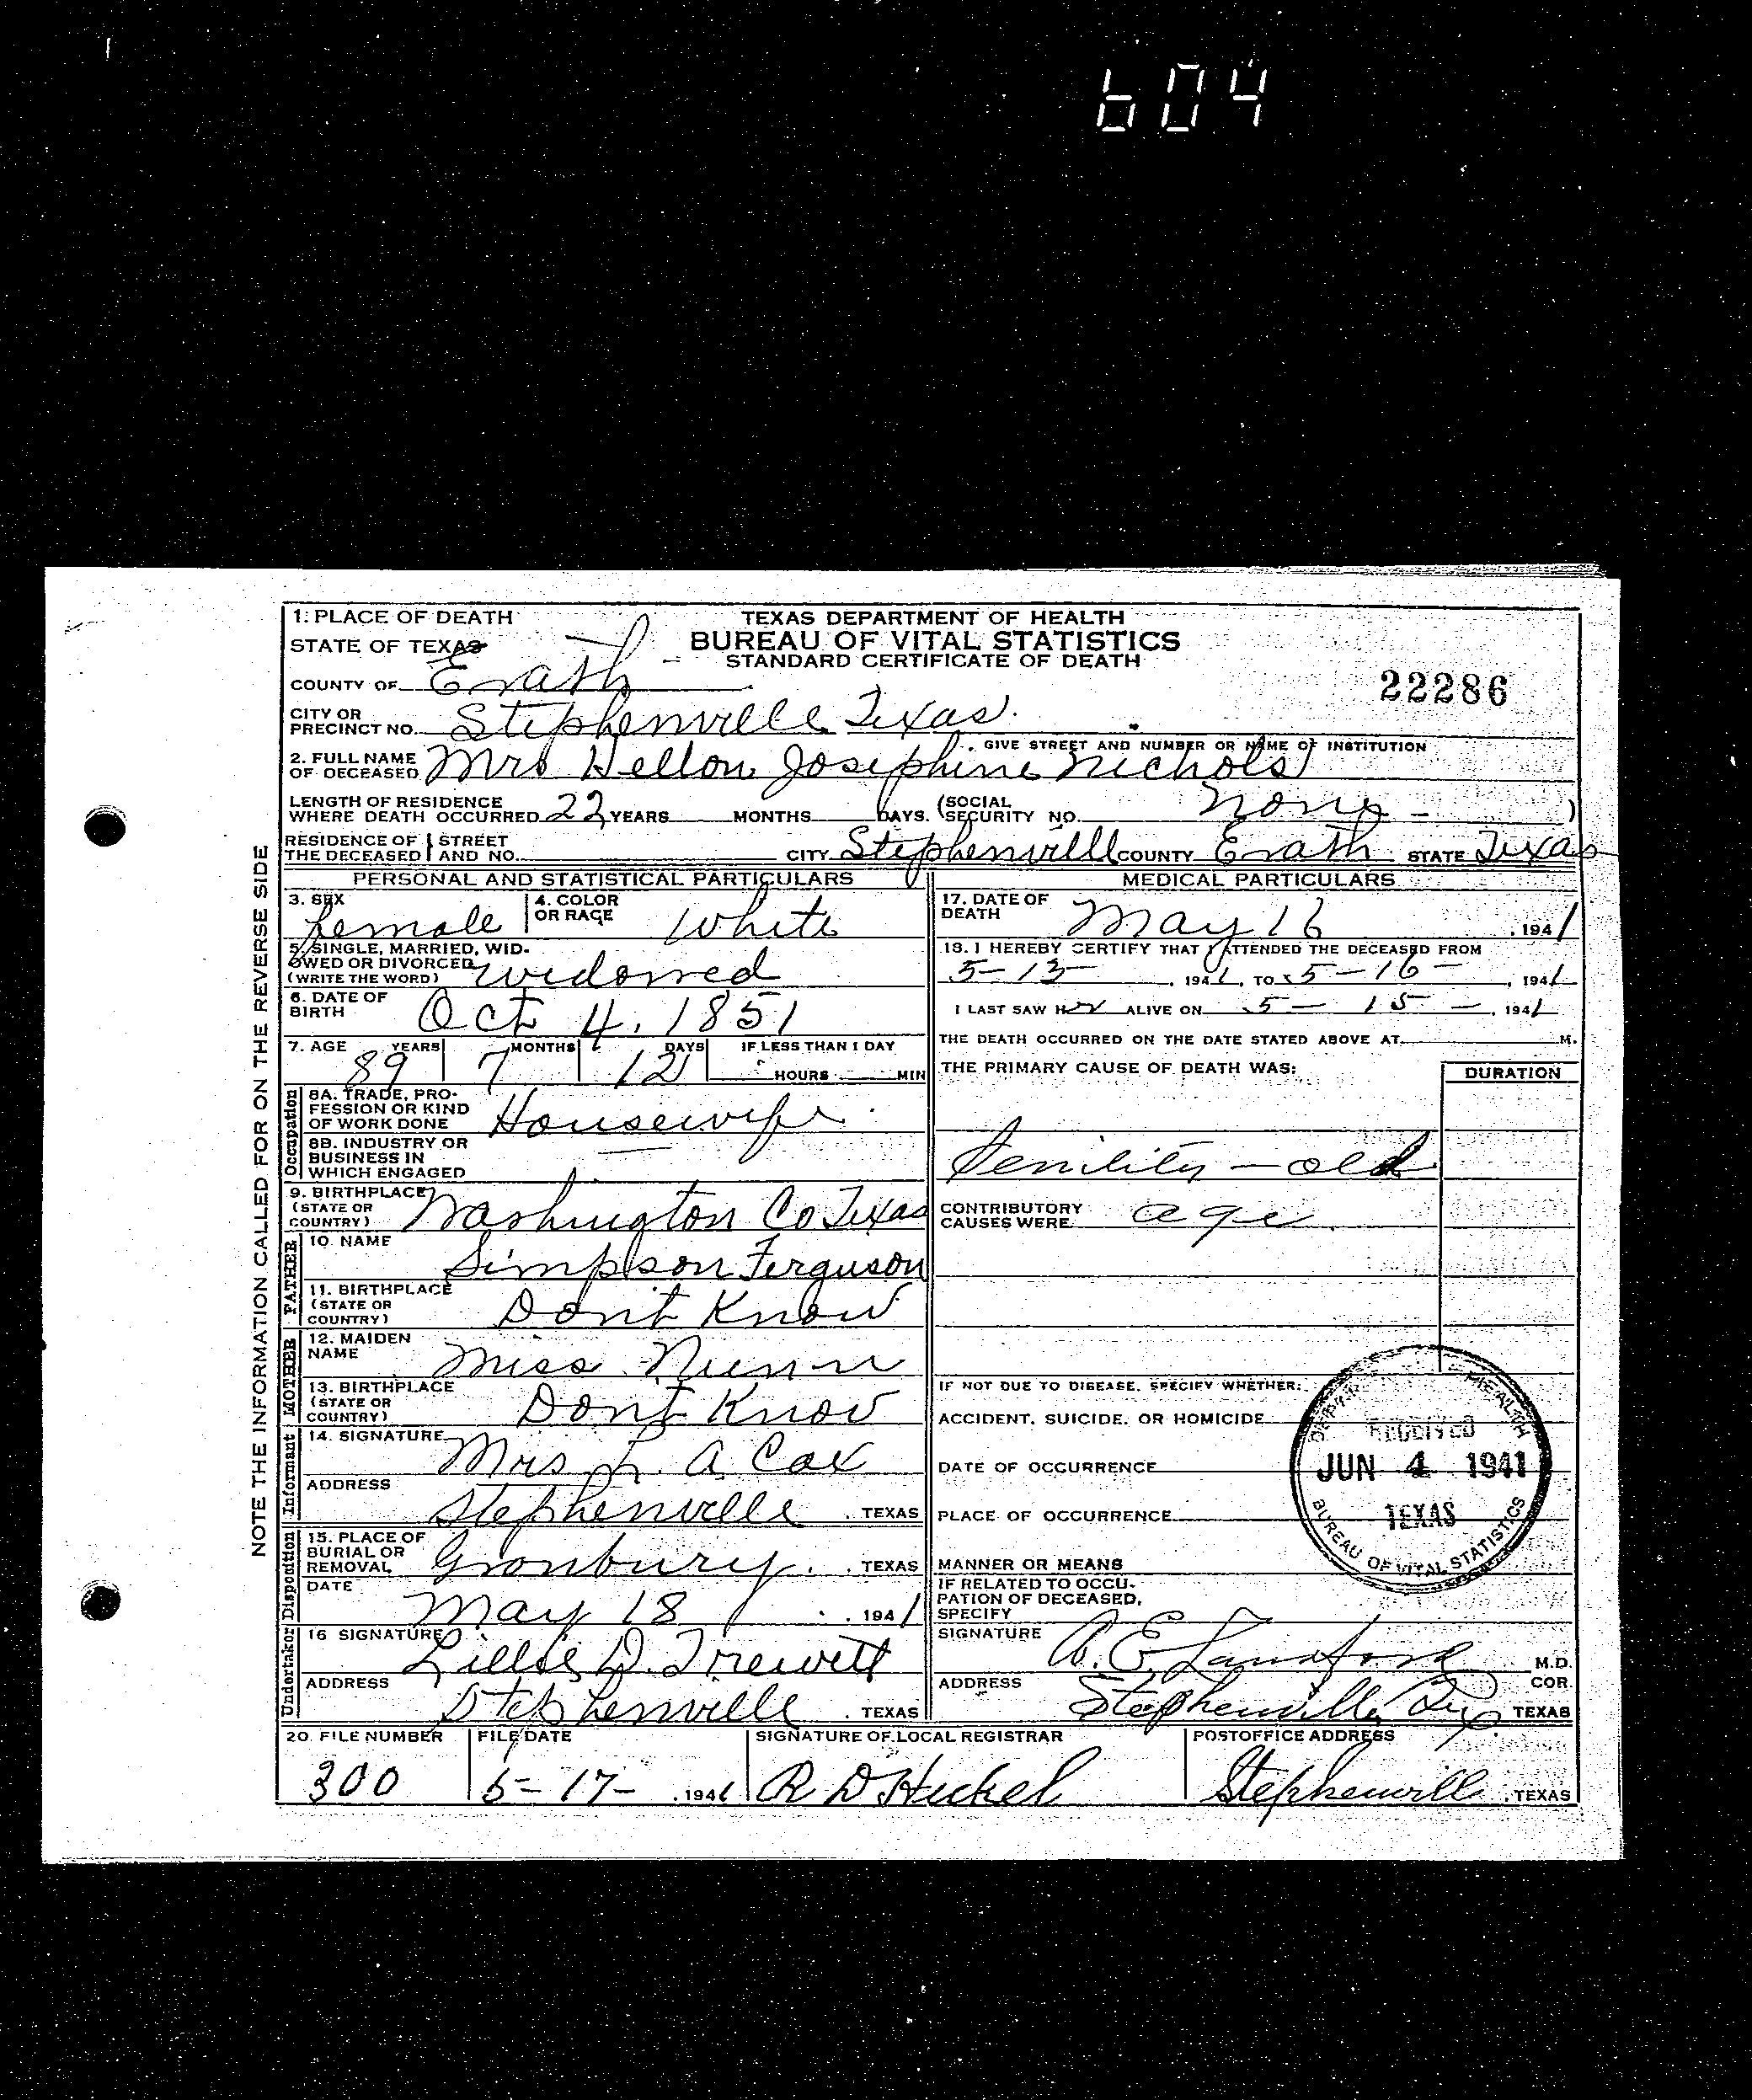 604
1. PLACE OF DEATH
TEXAS DEPARTMENT OF HEALTH
STATE OF TEXAS
BUREAU OF VITAL STATISTICS
STANDARD CERTIFICATE OF DEATH
COUNTY OF Erath
22286
CITY OR PRECINCT NO. Stephenville Texas.
GIVE STREET AND NUMBER OR NAME OF INSTITUTION
2. FULL NAME OF DECEASED Mrs Hellon Josephine Nichols
LENGTH OF RESIDENCE WHERE DEATH OCCURRED 22 YEARS MONTHS DAYS. (SOCIAL SECURITY NO. None )
RESIDENCE OF THE DECEASED STREET AND NO. CITY Stephenvill COUNTY Erath STATE Texas
NOTE THE INFORMATION CALLED FOR ON THE REVERSE SIDE
PERSONAL AND STATISTICAL PARTICULARS
3. SEX female
4. COLOR OR RACE White
5. SINGLE, MARRIED, WIDOWED OR DIVORCED (WRITE THE WORD) widowed
6. DATE OF BIRTH Oct 4, 1851
7. AGE YEARS 89 MONTHS 7 DAYS 12 IF LESS THAN 1 DAY HOURS MIN
Occupation
8A. TRADE, PROFESSION OR KIND OF WORK DONE Housewife
8B. INDUSTRY OR BUSINESS IN WHICH ENGAGED
9. BIRTHPLACE (STATE OR COUNTRY) Washington Co Texas
FATHER
10. NAME Simpson Ferguson
11. BIRTHPLACE (STATE OR COUNTRY) Dont Know
MOTHER
12. MAIDEN NAME Miss Nunn
13. BIRTHPLACE (STATE OR COUNTRY) Dont Know
Informant
14. SIGNATURE Mrs L. A. Cox
ADDRESS Stephenville TEXAS
Disposition
15. PLACE OF BURIAL OR REMOVAL Granbury. TEXAS
DATE May 18 1941
Undertaker
16 SIGNATURE Lillie D. Trewitt
ADDRESS Stephenville TEXAS
MEDICAL PARTICULARS
17. DATE OF DEATH May 16, 1941
18. I HEREBY CERTIFY THAT I ATTENDED THE DECEASED FROM
5-13, 1941, TO 5-16-, 1941
I LAST SAW Her ALIVE ON 5-15-, 1941
THE DEATH OCCURRED ON THE DATE STATED ABOVE AT M.
THE PRIMARY CAUSE OF DEATH WAS:
DURATION
Senility - old
CONTRIBUTORY CAUSES WERE age
IF NOT DUE TO DISEASE, SPECIFY WHETHER:
ACCIDENT, SUICIDE, OR HOMICIDE
DATE OF OCCURRENCE
PLACE OF OCCURRENCE
MANNER OR MEANS
IF RELATED TO OCCUPATION OF DECEASED, SPECIFY
RECEIVED
JUN 4 1941
TEXAS
BUREAU OF VITAL STATISTICS
SIGNATURE M.D. COR.
ADDRESS Stephenville TEXAS
20. FILE NUMBER 300
FILE DATE 5-17-, 1941
SIGNATURE OF LOCAL REGISTRAR R D Huckel
POSTOFFICE ADDRESS Stephenvill, TEXAS